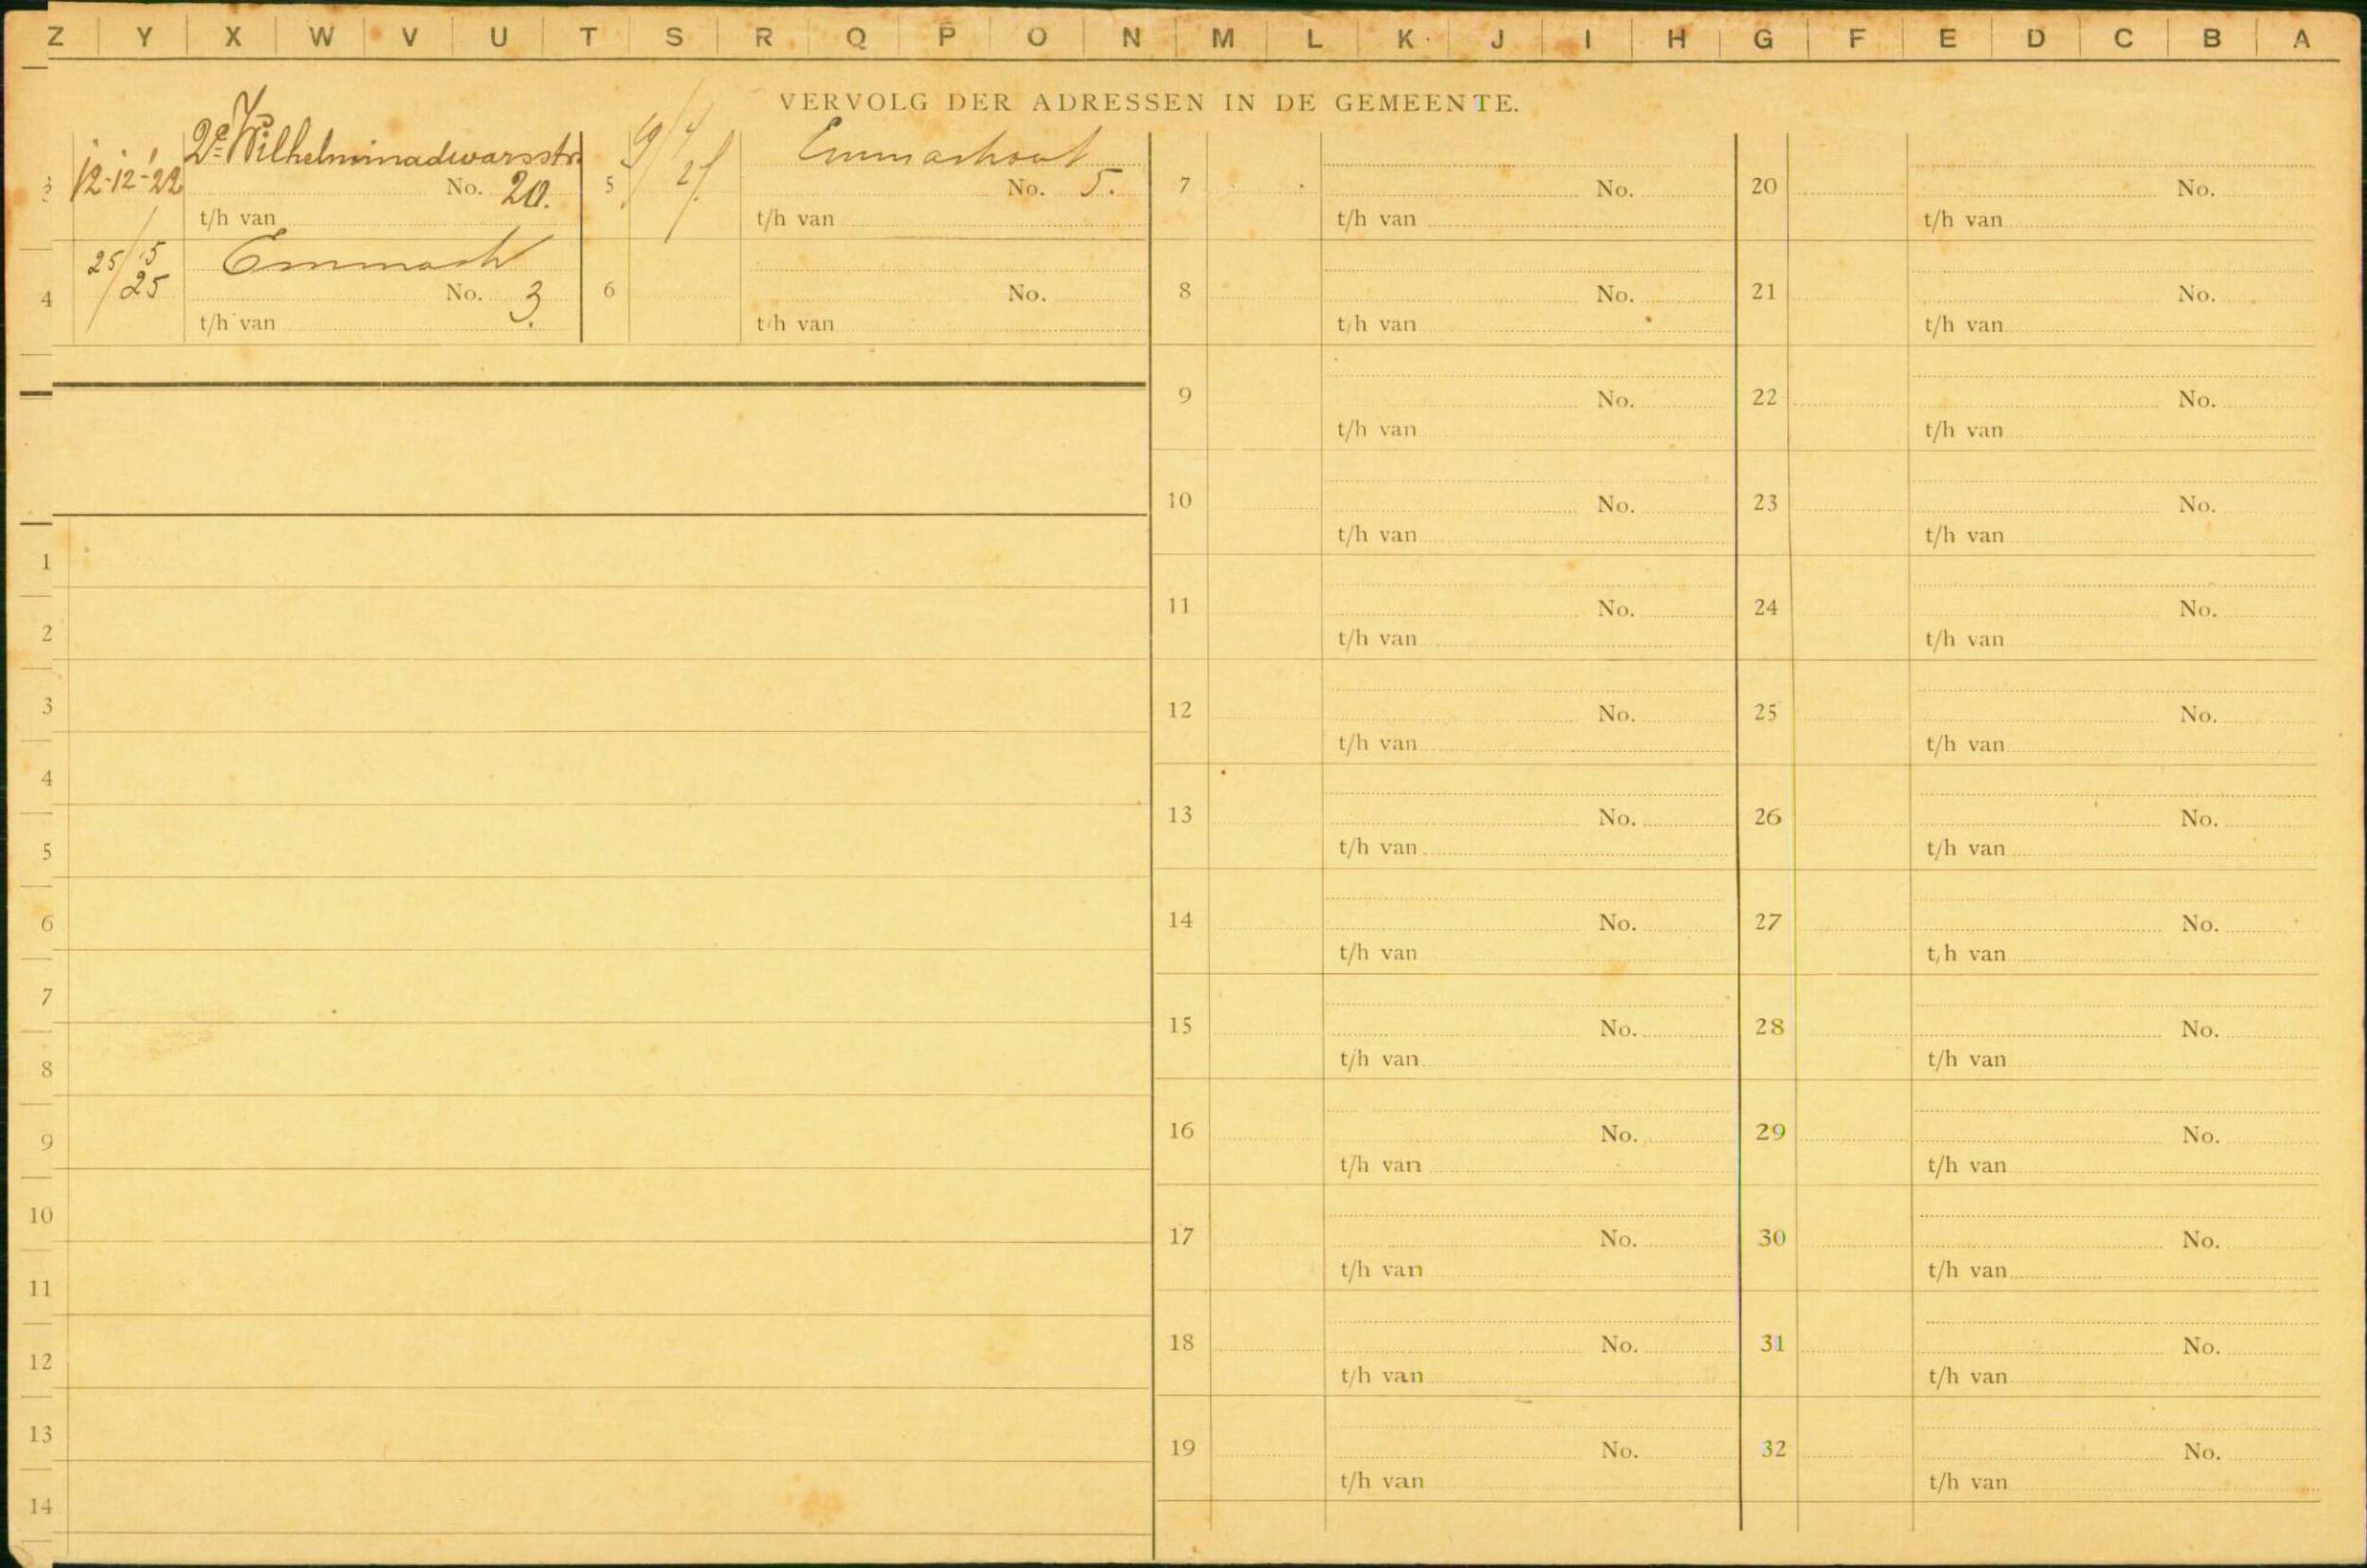 Z Y X W V U T S R Q P O N M L K J I H G F E D C B A
VERVOLG DER ADRESSEN IN DE GEMEENTE.
3 12-12-'22 2e Wilhelminadwarsstr
No. 20.
t/h van
4 25/5 25 Emmash
No. 3.
t/h van
5 19/4 27. Emmashout
No. 5.
t/h van
6 No.
t/h van
1
2
3
4
5
6
7
8
9
10
11
12
13
14
7 No.
t/h van
8 No.
t/h van
9 No.
t/h van
10 No.
t/h van
11 No.
t/h van
12 No.
t/h van
13 No.
t/h van
14 No.
t/h van
15 No.
t/h van
16 No.
t/h van
17 No.
t/h van
18 No.
t/h van
19 No.
t/h van
20 No.
t/h van
21 No.
t/h van
22 No.
t/h van
23 No.
t/h van
24 No.
t/h van
25 No.
t/h van
26 No.
t/h van
27 No.
t/h van
28 No.
t/h van
29 No.
t/h van
30 No.
t/h van
31 No.
t/h van
32 No.
t/h van